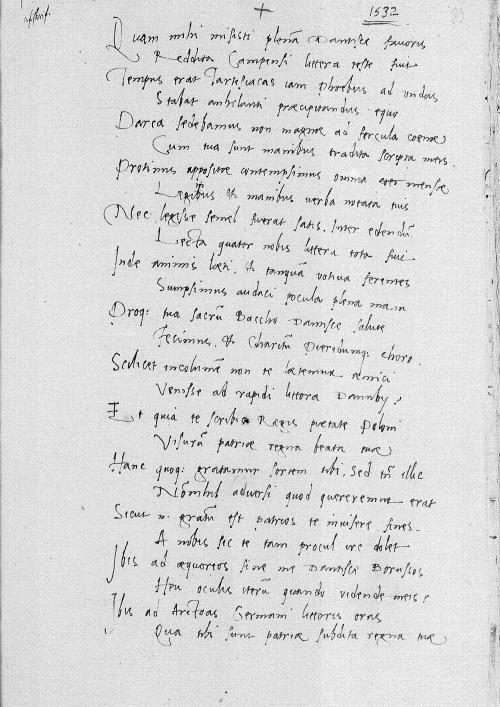 + 1532
Quam mihi misisti plenã Dantisce fauoris
Reddita Campensi littera teste fuit
Tempus erat Tartesiacas iam Phoebus ad undas
Stabat anhelanti præcipitandus equo
Darca sedebamus non magnæ ad fercula coenæ
Cum tua sunt manibus tradita scripta meis.
Protinus appositæ contempsimus omnia mensæ
Legibus et manibus verba notata tuis
Nec legisse semel fuerat satis. Inter edendũ
Lecta quater nobis littera tota fuit
Inde animis læti et tanquã votiua ferentes
Sumpsimus audaci pocula plena manu
Proq: tua sacrũ Baccho Dantisce salute
Fecimus, et Charitũ Pieridumq: choro.
Scilicet incolumẽ non te lætemur amici
Venisse ad rapidi littora Danuby?
Et quia te scribis Regis pietate Poloni
Visurũ patriæ regna beata tuæ
Hanc quoq: gratamur sortem tibi. Sed tñ illic
Nõnihil aduersi quod quereremur erat
Sicut n. gratũ est patrios te inuisere fines.
A nobis sic te tam procul ire dolet
Ibis ad æquoreos sine me Dantisce Borussos
Heu oculis iterũ quando vidende meis?
Ibis ad Arctoas Germani littoris oras
Qua tibi sunt patriæ subdita regna tuæ